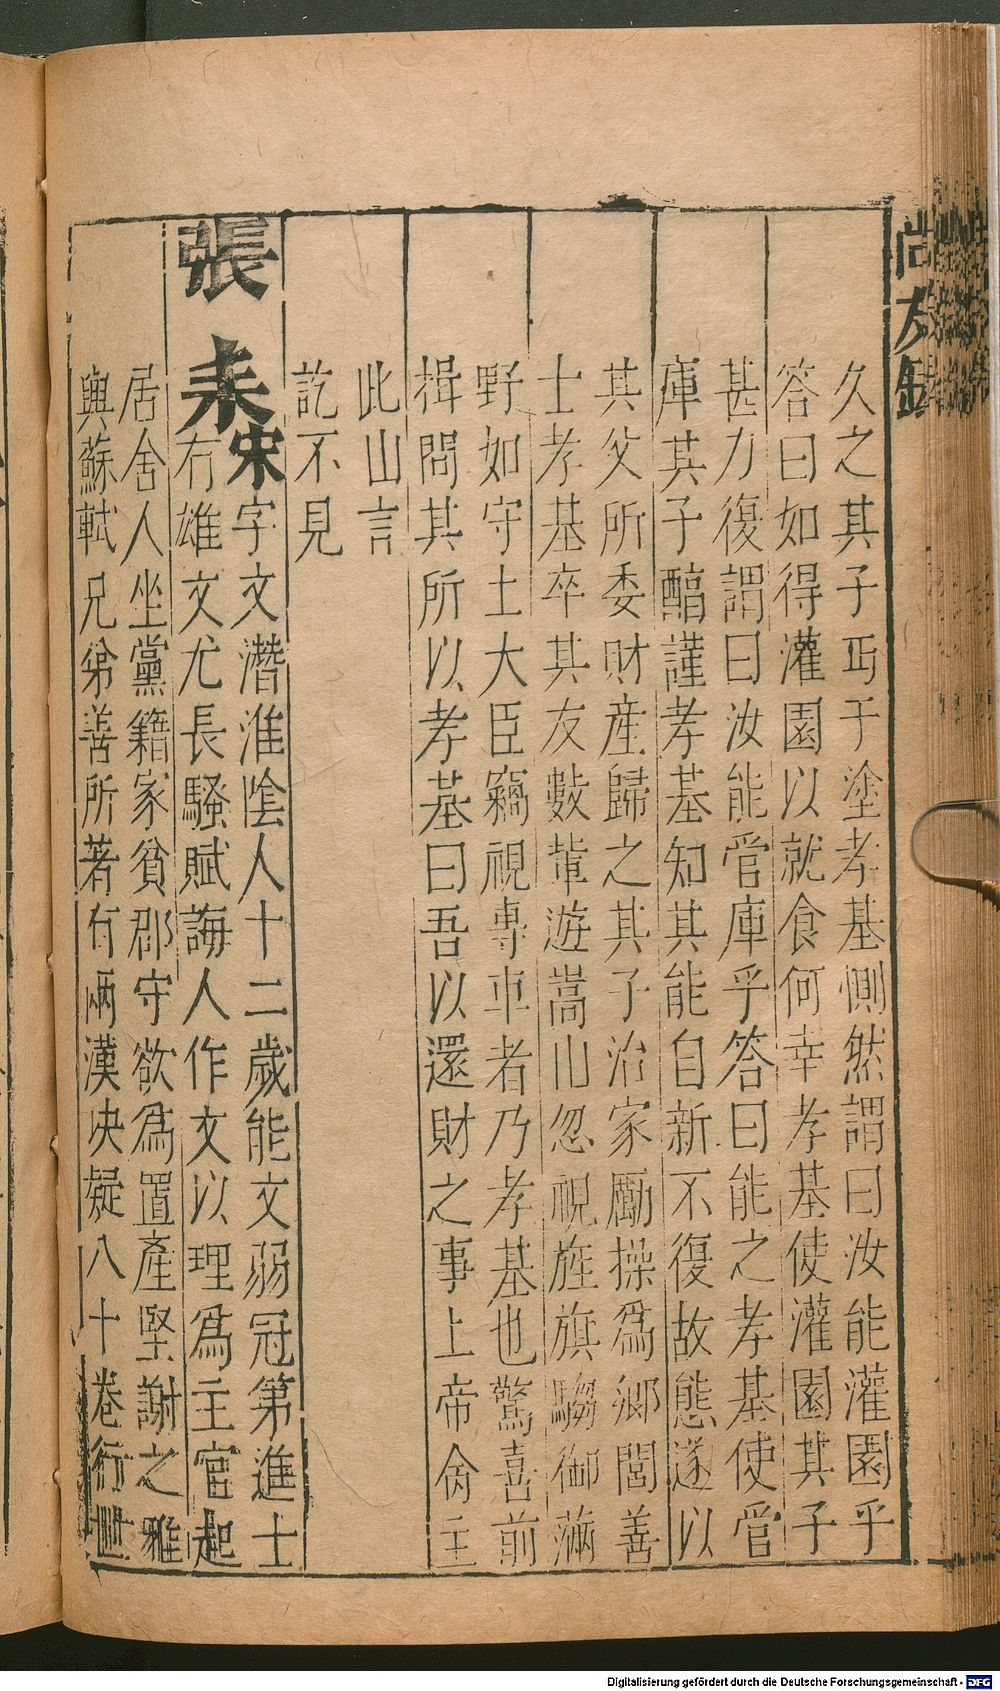 尚友錄
久之其子丐于塗孝基惻然謂曰汝能灌園乎
答曰如得灌園以就食何幸孝基使灌園其子
甚力復謂曰汝能管庫乎答曰能之孝基使管
庫其子醕謹孝基知其能自新不復故態遂以
其父所委財產歸之其子治家勵操為鄉閭善
士孝基卒其友數輩遊嵩山忽視旌旗騶御滿
野如守土大臣竊視專車者乃孝基也驚喜前
揖問其所以孝基曰吾以還財之事上帝命主
此山言
訖不見
張耒宋字文潛淮陰人十二歲能文弱冠第進士
有雄文尤長騷賦誨人作文以理為主官起
居舍人坐黨籍家貧郡守欲為置產堅謝之雅
與蘇軾兄弟善所著有兩漢决疑八十卷行世
Digitalisierung gefördert durch die Deutsche Forschungsgemeinschaft - DFG